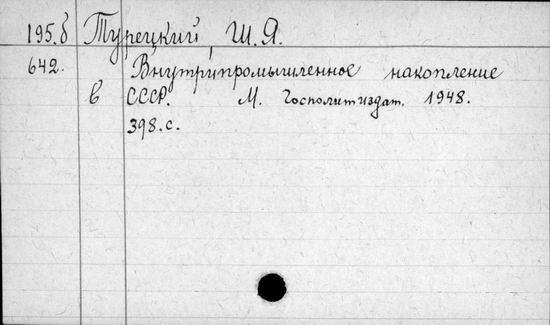 195.б Турецкий, Ш. Я.
642. Внутрипромышленное накопление
в СССР. М. Госполитиздат. 1948.
398.с.